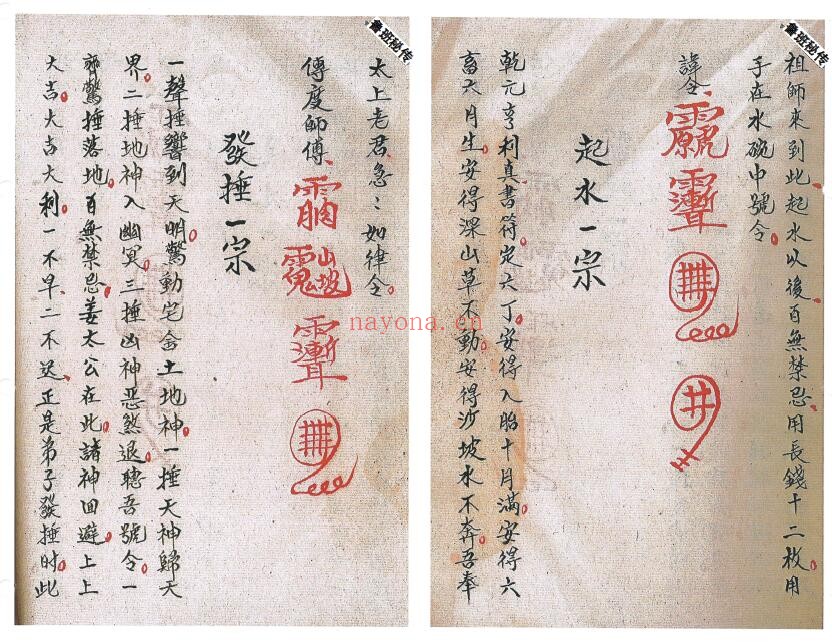 魯班秘传
祖師來到此起水以後百無禁忌用長錢十二枚用
手在水碗中號令
諱令
起水一宗
乾元亨柯真書符定六丁安得入胎十月滿安得六
畜六月生安得深山草不動安得沙坡水不奔吾奉
魯班秘传
太上老君急〻如律令
傳度師傅
發捶一宗
一聲捶響到天明驚動宅舍土地神一捶天神歸天
界二捶地神入幽冥三捶凶神惡煞退聽吾號令一
齊驚捶落地百無禁忌姜太公在此諸神回避上上
大吉大吉大利一不早二不迟正是弟子發捶时此
nayona.cn